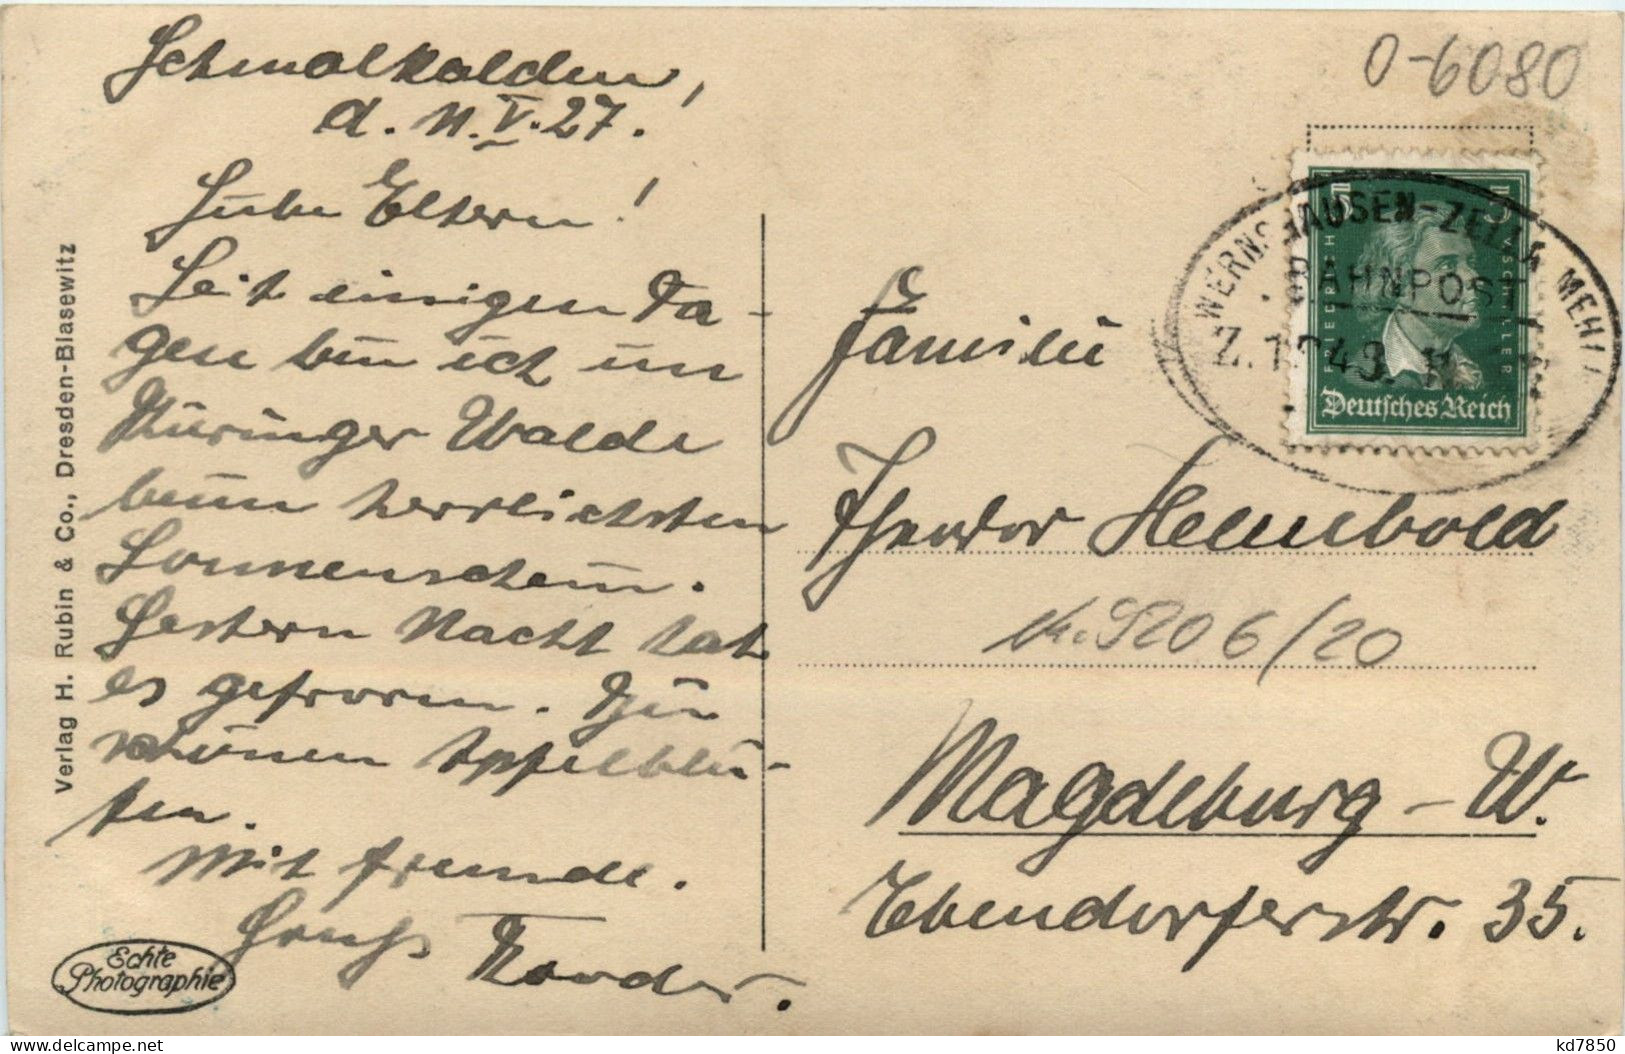 Schmalkalden,
d. 11. V. 27.
Liebe Eltern!
Seit einigen Ta-
gen bin ich im
Thüringer Walde
beim herrlichsten
Sonnenschein.
Gestern Nacht hat
es gefroren.
schönen Apfelblü-
ten.
Mit freundl.
Gruß Theodor.
Verlag H. Rubin & Co., Dresden-Blasewitz
Echte
Photographie
0-6080
WERNSHAUSEN-ZELLA MEHLIS
BAHNPOST
FRIEDRICH V SCHILLER
5 5
Deutsches Reich
Familie
Theodor Helmbold
206/20
Magdeburg-W.
Ebendorferstr. 35.
kd7850